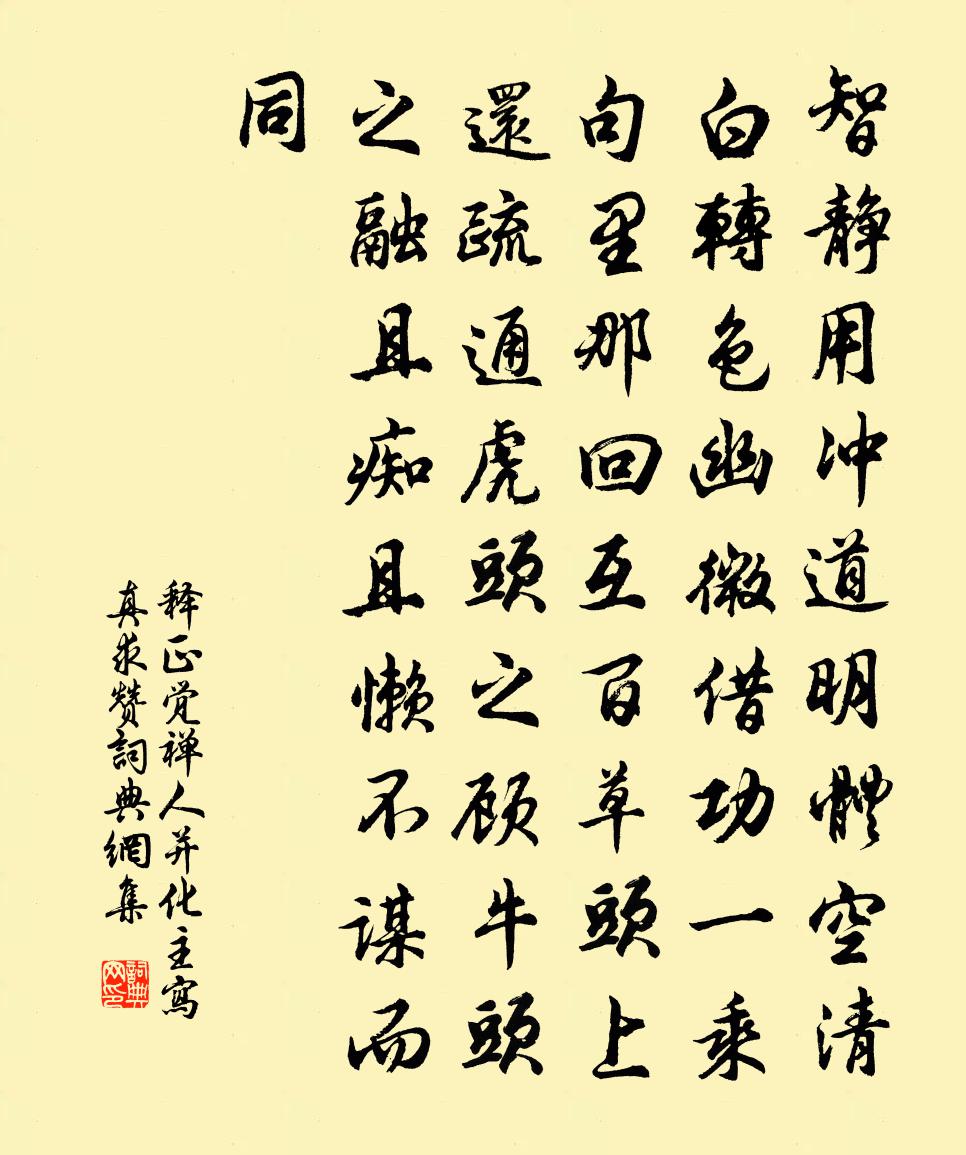 智静用冲道明體空清
白轉色幽微借功一乘
句里那回互百草頭上
還疏通虎頭之顾牛頭
之融且痴且懒不谋而
同
释正觉禅人并化主寫
真求赞詞典網集
詞典
网印